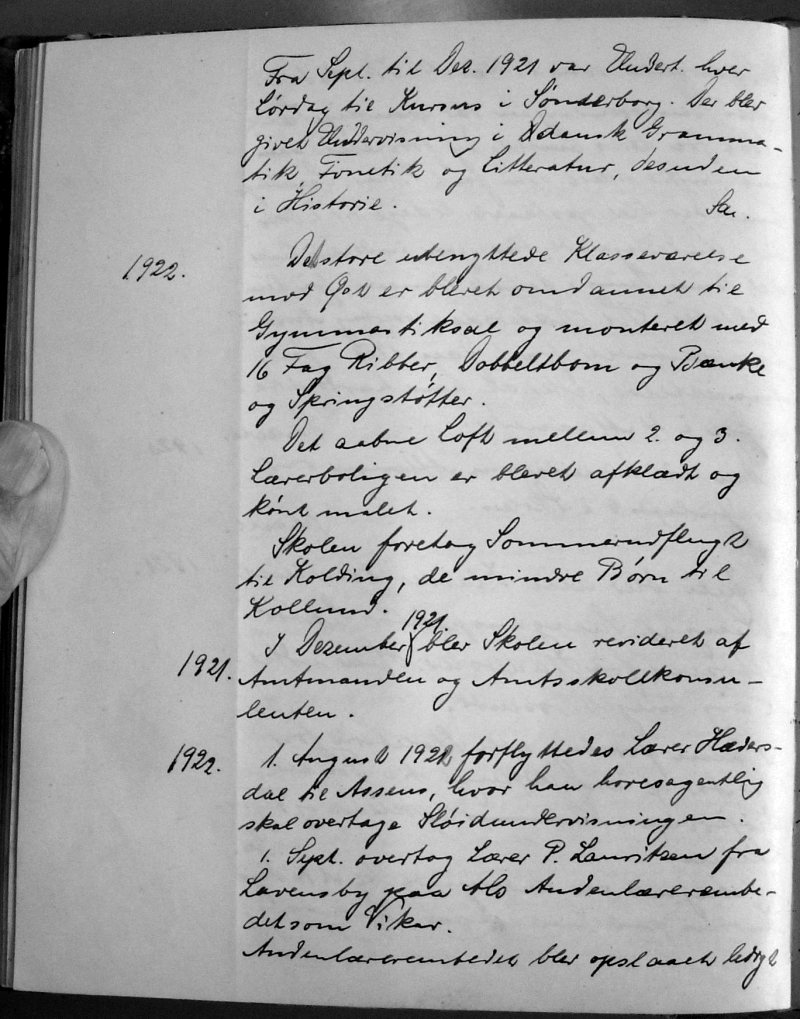 Fra Sept. til Dez. 1921 var Undert. hver
Lørdag til Kursus i Sønderborg. Der blev
givet Undervisning i Ddansk Gramma-
tik, Fonetik og Litteratur, desuden
i Historie. Sa.
1922. Det store ubenyttede Klasseværelse
mod Øst er blevet omdannet til
Gymnastiksal og monteret med
16 Fag Ribber, Dobbeltbom og Bænke
og Springstøtter.
Det aabne Loft mellem 2. og 3.
Lærerboligen er blevet afklædt og
kønt malet.
Skolen foretog Sommerudflugt
til Kolding, de mindre Børn til
Kollund.
1921. I Dezember 1921 blev Skolen revideret af
Amtmanden og Amtsskolekonsu-
lenten.
1922. 1. August 1922 forflyttedes Lærer Hæders-
dal til Assens, hvor han hovesagentlig
skal overtage Sløidundervisningen.
1. Sept. overtog Lærer P. Lauritzen fra
Lavensby paa Als Andenlærerembe-
det som Vikar.
Andenlærerembedet blev opslaaet ledigt